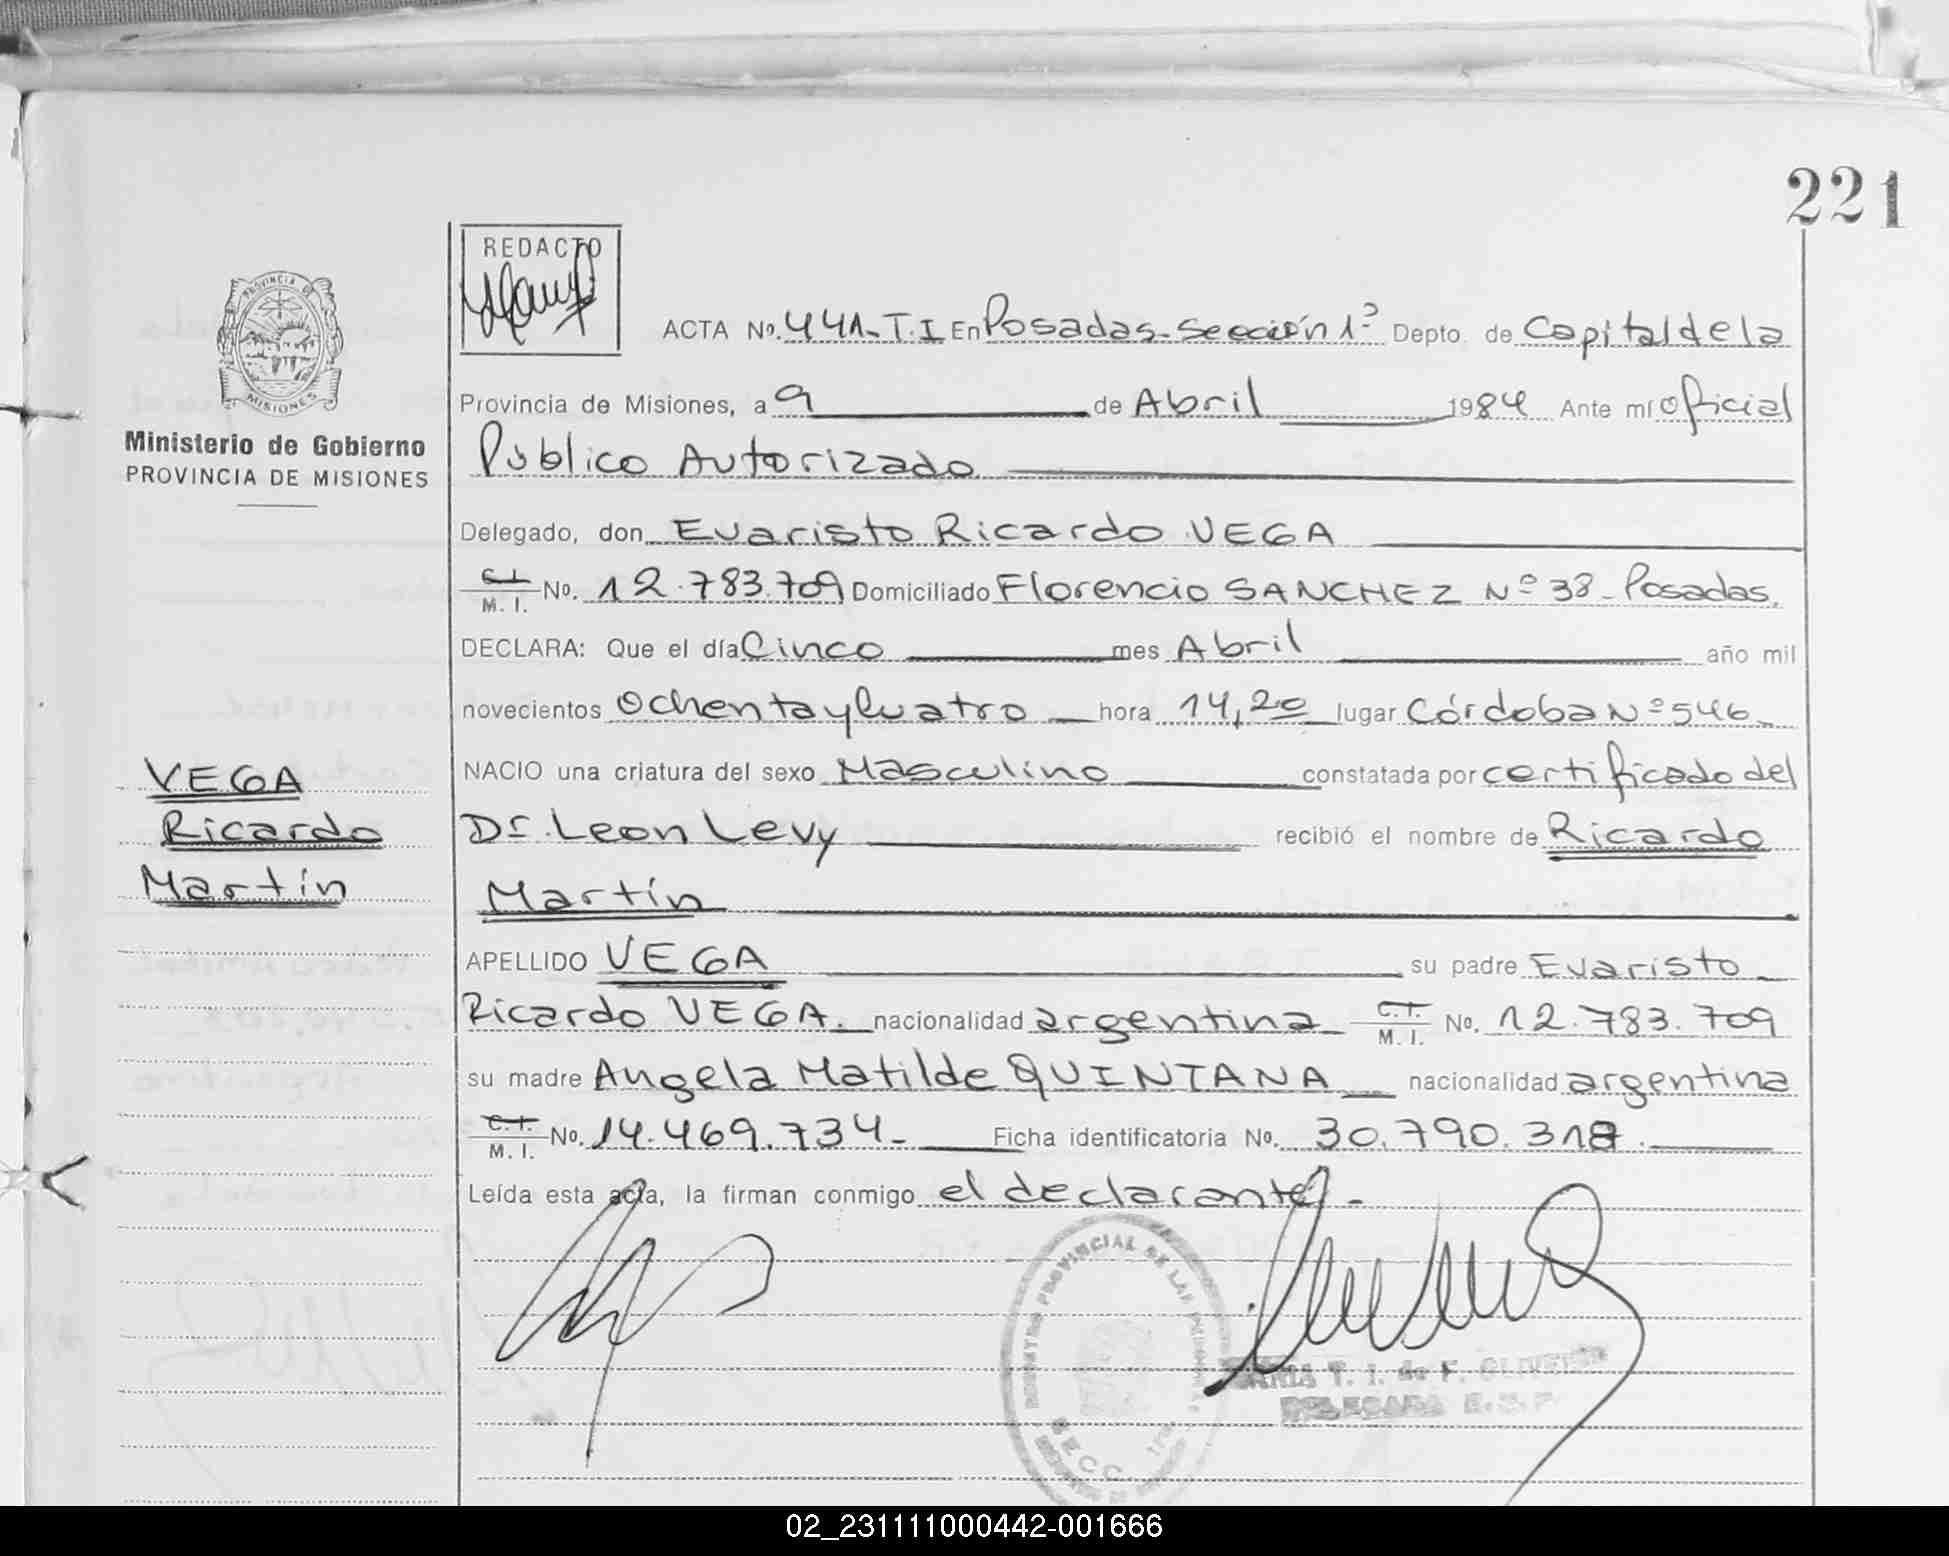 221
REDACTO
PROVINCIA DE
MISIONES
Ministerio de Gobierno
PROVINCIA DE MISIONES
ACTA No. 441-T.I En Posadas-Sección 1ª Depto. de Capital de la
Provincia de Misiones, a 9 de Abril 1984 Ante mí oficial
Público Autorizado
Delegado, don Evaristo Ricardo VEGA
C.I. M.I. No. 12.783.709 Domiciliado Florencio SANCHEZ Nº 38-Posadas.
DECLARA: Que el día Cinco mes Abril año mil
novecientos Ochenta y Cuatro hora 14,20 lugar Córdoba Nº 546
NACIO una criatura del sexo Masculino constatada por certificado del
Dr. Leon Levy recibió el nombre de Ricardo
Martín
VEGA
Ricardo
Martín
APELLIDO VEGA su padre Evaristo
Ricardo VEGA. nacionalidad argentina C.I. M.I. No. 12.783.709
su madre Angela Matilde QUINTANA nacionalidad argentina
C.I. M.I. No. 14.469.734- Ficha identificatoria No. 30.790.318.
Leída esta acta, la firman conmigo el declarante.-
PROVINCIAL DE LAS
SECC.
T. I. de F. OLIVEIRA
DELEGADA
02_231111000442-001666